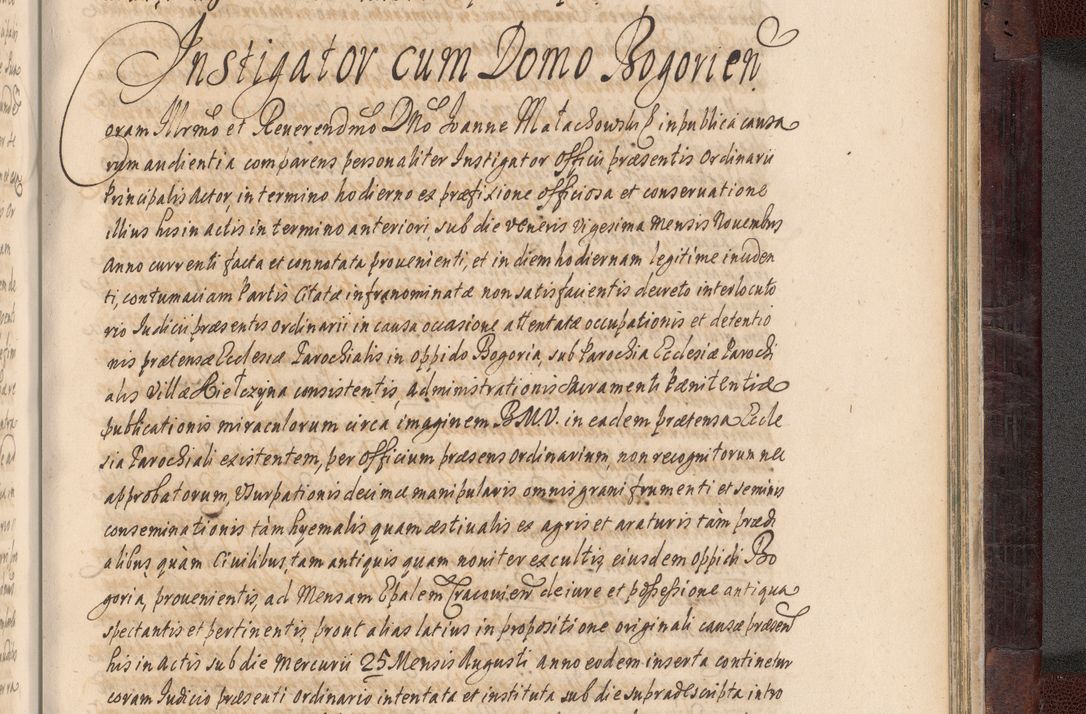 Instigator cum Domo Bogorień
Coram Illrmo et Reuerendmo Dno Joanne Małachowski Epo in publica causa
rum audientia comparens personaliter Instigator Officii præsentis Ordinarii
Principalis Actor, in termino hodierno ex præfixione officiosa et conservatione
illius his in actis in termino anteriori, sub die Veneris Vigesima Mensis Nouembris
Anno currenti facta et connotata prouenienti, et in diem hodiernam legitime inciden
ti, contumaciam Partis Citatæ infranominatæ non satisfacientis decreto interlocuto
rio Iudicii præsentis Ordinarii in causa occasione attentatæ occupationis et detentio
nis prætensæ Ecclesiæ Parochialis in oppido Bogoria, sub Parochia Ecclesiæ Parochi
alis Villæ Kiełczyna consistentis, administrationis Sacramenti Pænitentiæ
publicationis miraculorum circa imaginem B.M.V. in eadem prætensa Eccle
sia Parochiali existentem, per Officium præsens Ordinarium, non recognitorum nec
approbatorum, Usurpationis decimæ manipularis omnis grani frumenti et seminis
conseminationis tàm hyemalis quam æstiualis ex agris et araturis tàm prædi
alibus quàm Civilibus, tam antiquis quam nouiter excultis, eiusdem oppidi Bo
goria, prouenientis, ad Mensam Epalem Cracouień de iure et possessione antiqua
spectantis et pertinentis, prout alias latius in propositione originali causæ præsen
his in actis sub die Mercurii 25 Mensis Augusti anno eodem inserta continetur
coram Iudicio præsenti Ordinario intentata et instituta sub die supradescripta intro